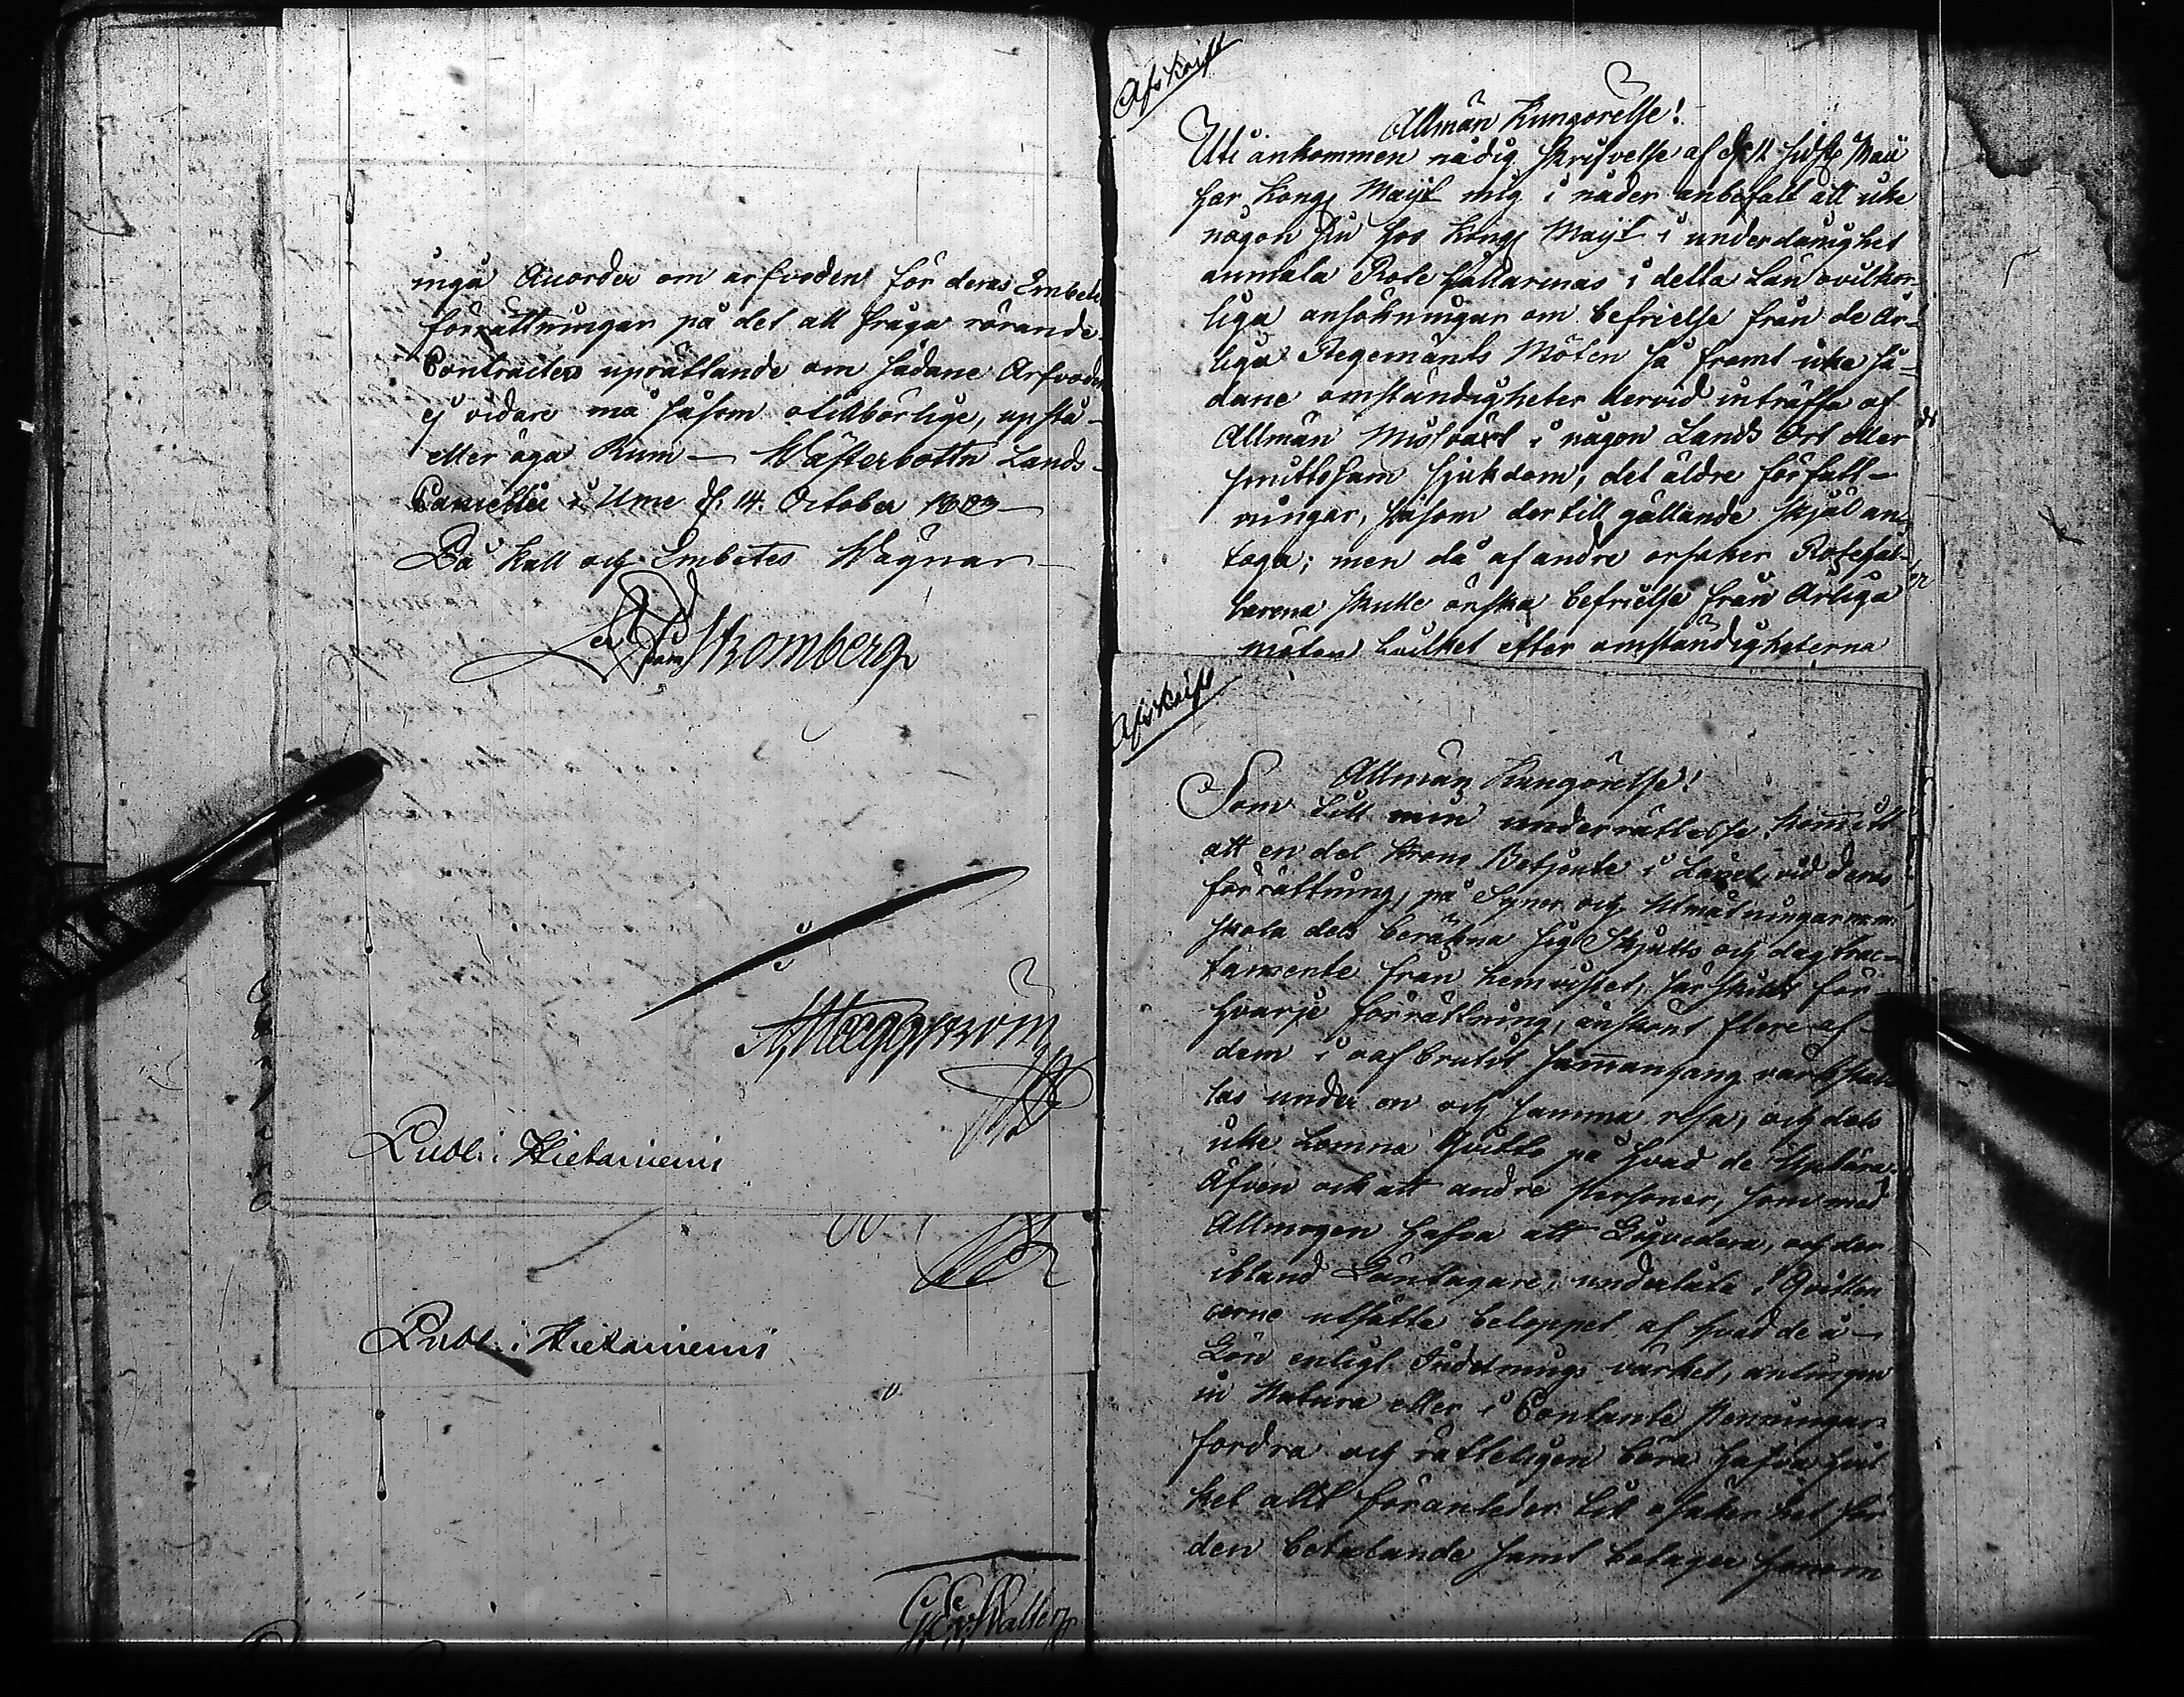 ingå Accorder om arfvoden för deras Embets
förrättningar på det all fråga rörande
Contracters uprättande om sådane Arfvoden
ej vidare må såsom otillbörlige, upstå
eller äga Rum — Wästerbottn Lands-
Cancellie i Umeå d. 14. October
På Kall och Embetes Wägnar
Stromberg
Häggström
Publ: i Hietaniemi
Publ: i Hietaniemi
Afskrift
Allmän Kungörelse!
Uti ankommen nådig skrifvelse af d. 12 sidstl. Maii
har Kongl Maijt mig i nåder anbefalt att icke
någon sin hos Kongl Maijt i underdånighet
anmäla Rotehållarenas i detta Län ovilkor-
liga ansökningar om befrielse från de år-
liga Regements Möten så framt icke så-
dane omständigheter dervid inträffa af
Allmän Missväxt i någon Lands Ort eller
smittosam sjukdom, det äldre författ-
ningar, såsom dertill gällande skjäl an-
toga; men då af andre orsaker Rotehål-
larena skulle önska befrielse från Årliga
möten hvilket efter omständigheterna
Afskrift
Allmän Kungörelse!
Som till min underrättelse kommit
att en del Krono Betjente i Länet, vid deras
förrättning, på Syner och Utmätningar m.m.
skola dels beräkna sig Skjutts och dagtrac-
tamente från hemvistet, särskildt för
hvarje förrättning, änskönt flere af
dem i oafbrutit sammanhang värkstäl
las under en och samma resa, och dels
icke lemna Quitto på hvad de upbära.
Äfven ock att andre personer, som med
Allmogen hafva att Liqvidera, och der
ibland Löntagare, underlåta i Quitten
cerne utsätta beloppet af hvad de i
Lön enligt Indelnings värket, antingen
in Natura eller i Contante Penningar
fordra och rätteligen böra hafva hvil
ket allt föranleder till osäkerhet för
den betalande samt betager honom